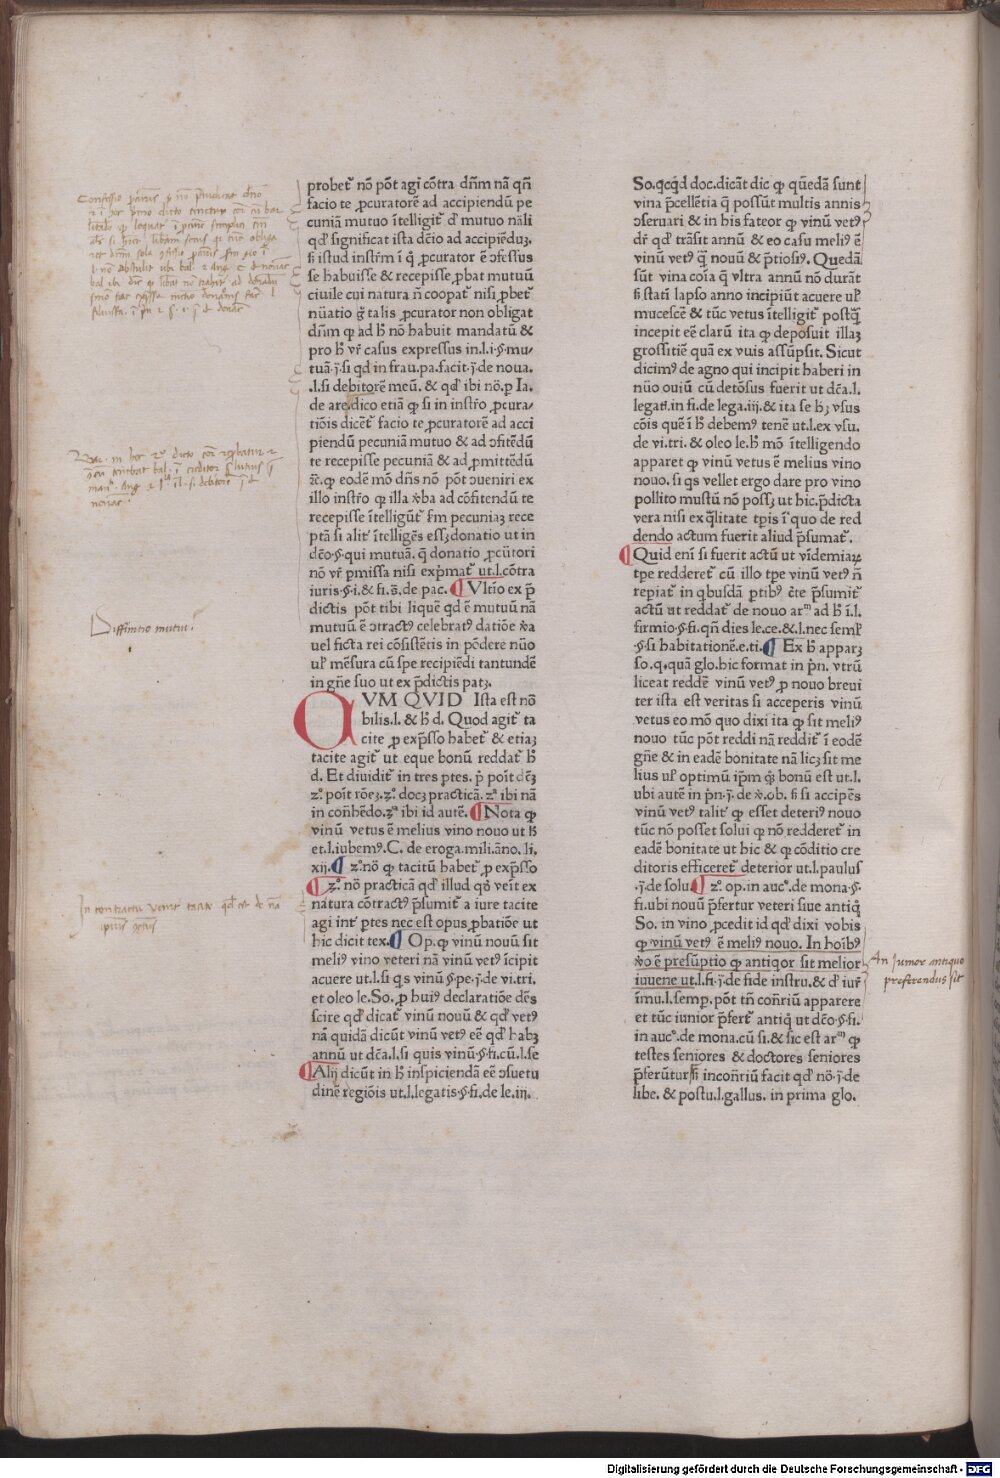 probet᷑ nō pōt agi cōtra dn̄m nā qn̄
facio te ꝓcuratorē ad accipiendū pe
cuniā mutuo ītelligit᷑ dĕ mutuo nāli
qd̕ significat ista dc̄io ad accipiēduꝫ.
ſꝫ istud instrm̄ ī q̇ ꝓcurator ē ꝯfessus
se habuisse & recepisse ꝓbat mutuū
ciuile cui natura n̄ coopat᷑ nisi ꝓbet᷑
nūatio
talis ꝓcurator non obligat
dn̄m ꝙ ad h̄ nō habuit mandatū &
pro h̄ vr̄ casus expressus in.l.i.§.mu/
tuā.j̄.si qd in frau.pa.facit.j̄.de noua.
.l.si debitorē meū. & qd̕ ibi nō.p Ia.
de are.dico etiā ꝙ si in instr̄o ꝓcura/
tiōis dicet᷑ facio te ꝓcuratorē ad acci
piendū pecuniā mutuo & ad ꝯfitēdū
te recepisse pecuniā & ad ꝓmittēdū
ꝙ eodē mō dn̄s nō pōt ꝯueniri ex
illo instr̄o ꝙ illa v̇ba ad cōfitendū te
recepisse ītelligūt᷑ ſm pecuniaꝫ rece
ptā si alit᷑ ītelligēs essꝫ donatio ut in
dc̄o.§.qui mutuā. q̄ donatio ꝓcūtori
nō vr̄ pmissa nisi exp̄mat᷑ ut.l.cōtra
iuris.§.i.& fi.s̄.de pac. ¶ Vltīo ex p̄
dictis pōt tibi liquē qd ē mutuū nā
mutuū ē ꝯtractꝰ celebratꝰ datiōe v̇a
uel ficta rei cōsistētis in pōdere nūo
ul̕ mēsura cū spe recipiēdi tantundē
in gn̄e suo ut ex p̄dictis patꝫ.
CVM QVID Ista est nō
bilis.l. & h̄ d. Quod agit᷑ ta
cite ꝓ exp̄sso habet᷑ & etiaꝫ
tacite agit᷑ ut eque bonū reddat᷑ h̄
d. Et diuidit᷑ in tres ptes. p̄ poīt dēꝫ
zº.poīt rōeꝫ.zº.doceꝫ practicā. zª ibi nā
in conh̄edo.zª ibi id autē. ¶ Nota ꝙ
vinū vetus ē melius vino nouo ut h̄
et.l.iubemꝰ.C. de eroga.mili.āno. li.
xij. ¶ zº.nō ꝙ tacitū habet᷑ ꝓ exp̄sso
¶ zº. nō practicā qd̕ illud qd̕ veīt ex
natura cōtractꝰ p̄sumit᷑ a iure tacite
agi int᷑ ptes nec est opus ꝓbatiōe ut
hic dicit tex. ¶ Op. ꝙ vinū nouū sit
meliꝰ vino veteri nā vinū vetꝰ īcipit
acuere ut.l.si qs vinū.§.pe.j̄.de vi.tri.
et oleo le.So.ꝓ huiꝰ declaratiōe dēs
scire qd̕ dicat᷑ vinū nouū & qd̕ vetꝰ
nā quidā dicūt vinū vetꝰ eē qd̕ habꝫ
annū ut dc̄a.l.si quis vinū.§.fi.cū.l.se
¶ Alij dicūt in h̄ inspiciendā eē ꝯsuetu
dinē regiōis ut.l.legatis.§.fi.de le.iij.
So.qcqd doc.dicāt dic ꝙ quēdā sunt
vina p̄cellētia q̄ possūt multis annis
ꝯseruari & in his fateor ꝙ vinū vetꝰ
dr̄ qd̕ trāsit annū & eo casu meliꝰ ē
vinū vetꝰ q̄ nouū & p̄tiosiꝰ. Quedā
sūt vina cōia q̄ vltra annū nō durāt
ſꝫ statī lapso anno incipiūt acuere ul̕
mucescē & tūc vetus ītelligit᷑ postq̄
incepit eē clarū ita ꝙ deposuit illaꝫ
grossitiē quā ex vuis assūpsit. Sicut
dicimꝰ de agno qui incipit haberi in
nūo ouiū cū detōsus fuerit ut dc̄a.l.
legati.in fi.de lega.iij.& ita se hꝫ vsus
cōis que ī h̄ debemꝰ tenē ut.l.ex vsu.
de vi.tri. & oleo le.h̄ mō ītelligendo
apparet ꝙ vinū vetus ē melius vino
nouo. si qs vellet ergo dare pro vino
pollito mustū nō possꝫ ut hic.p̄dicta
vera nisi ex q̄litate tp̄is ī quo de red
dendo actum fuerit aliud p̄sumat᷑.
¶ Quid eni si fuerit actū ut vīdemiaꝝ
tpe redderet᷑ cū illo tpe vinū vetꝰ n̄
repiat᷑ in qbusdā ptibꝰ c̄te p̄sumit᷑
actū ut reddat᷑ de nouo arᵐ ad h̄ ī.l.
firmio.§.fi.qn̄ dies le.ce.&.l.nec semꝑ
.§.si habitationē.e.ti. ¶ Ex h̄ apparꝫ
so.q.quā glo.hic format in p̄n. vtrū
liceat reddē vinū vetꝰ ꝓ nouo breui
ter ista est veritas si acceperis vinū
vetus eo mō quo dixi ita ꝙ sit meliꝰ
nouo tūc pōt reddi nā reddit᷑ ī eodē
gn̄e & in eadē bonitate nā licꝫ sit me
lius ul̕ optimū ip̄m qꝫ bonū est ut.l.
ubi autē in p̄n.j̄.de v̇.ob. ſꝫ si accipēs
vinū vetꝰ talit᷑ ꝙ esset deteriꝰ nouo
tūc nō posset solui ꝙ nō redderet᷑ in
eadē bonitate ut hic & ꝙ cōditio cre
ditoris efficeret᷑ deterior ut.l.paulus
.j̄.de solu. ¶ zº. op.in aucº.de mona.§.
fi.ubi nouū p̄fertur veteri siue antiq̇
So. in vino ꝓcedit id qd̕ dixi vobis
ꝙ vinū vetꝰ ē meliꝰ nouo. In hoībꝰ
v̇o ē presūptio ꝙ antiqor sit melior
iuuene ut.l.fi.j̄.de fide instru.& dĕ iur̄
īmu.l.semꝑ. pōt tn̄ con̄riū apparere
et tūc iunior p̄fert᷑ antiq̇ ut dc̄o.§.fi.
in aucº.de mona.cū si.& sic est arᵐ ꝙ
testes seniores & doctores seniores
p̄ferūtur ſꝫ incon̄riū facit qd̕ nō.j̄.de
libe. & postu.l.gallus. in prima glo.
Diffinitio mutui
In contractu venit tacite qd̕ est de nā
ipsius ꝯctus
An Junior antiquo
preferendus sit
Digitalisierung gefördert durch die Deutsche Forschungsgemeinschaft - DFG